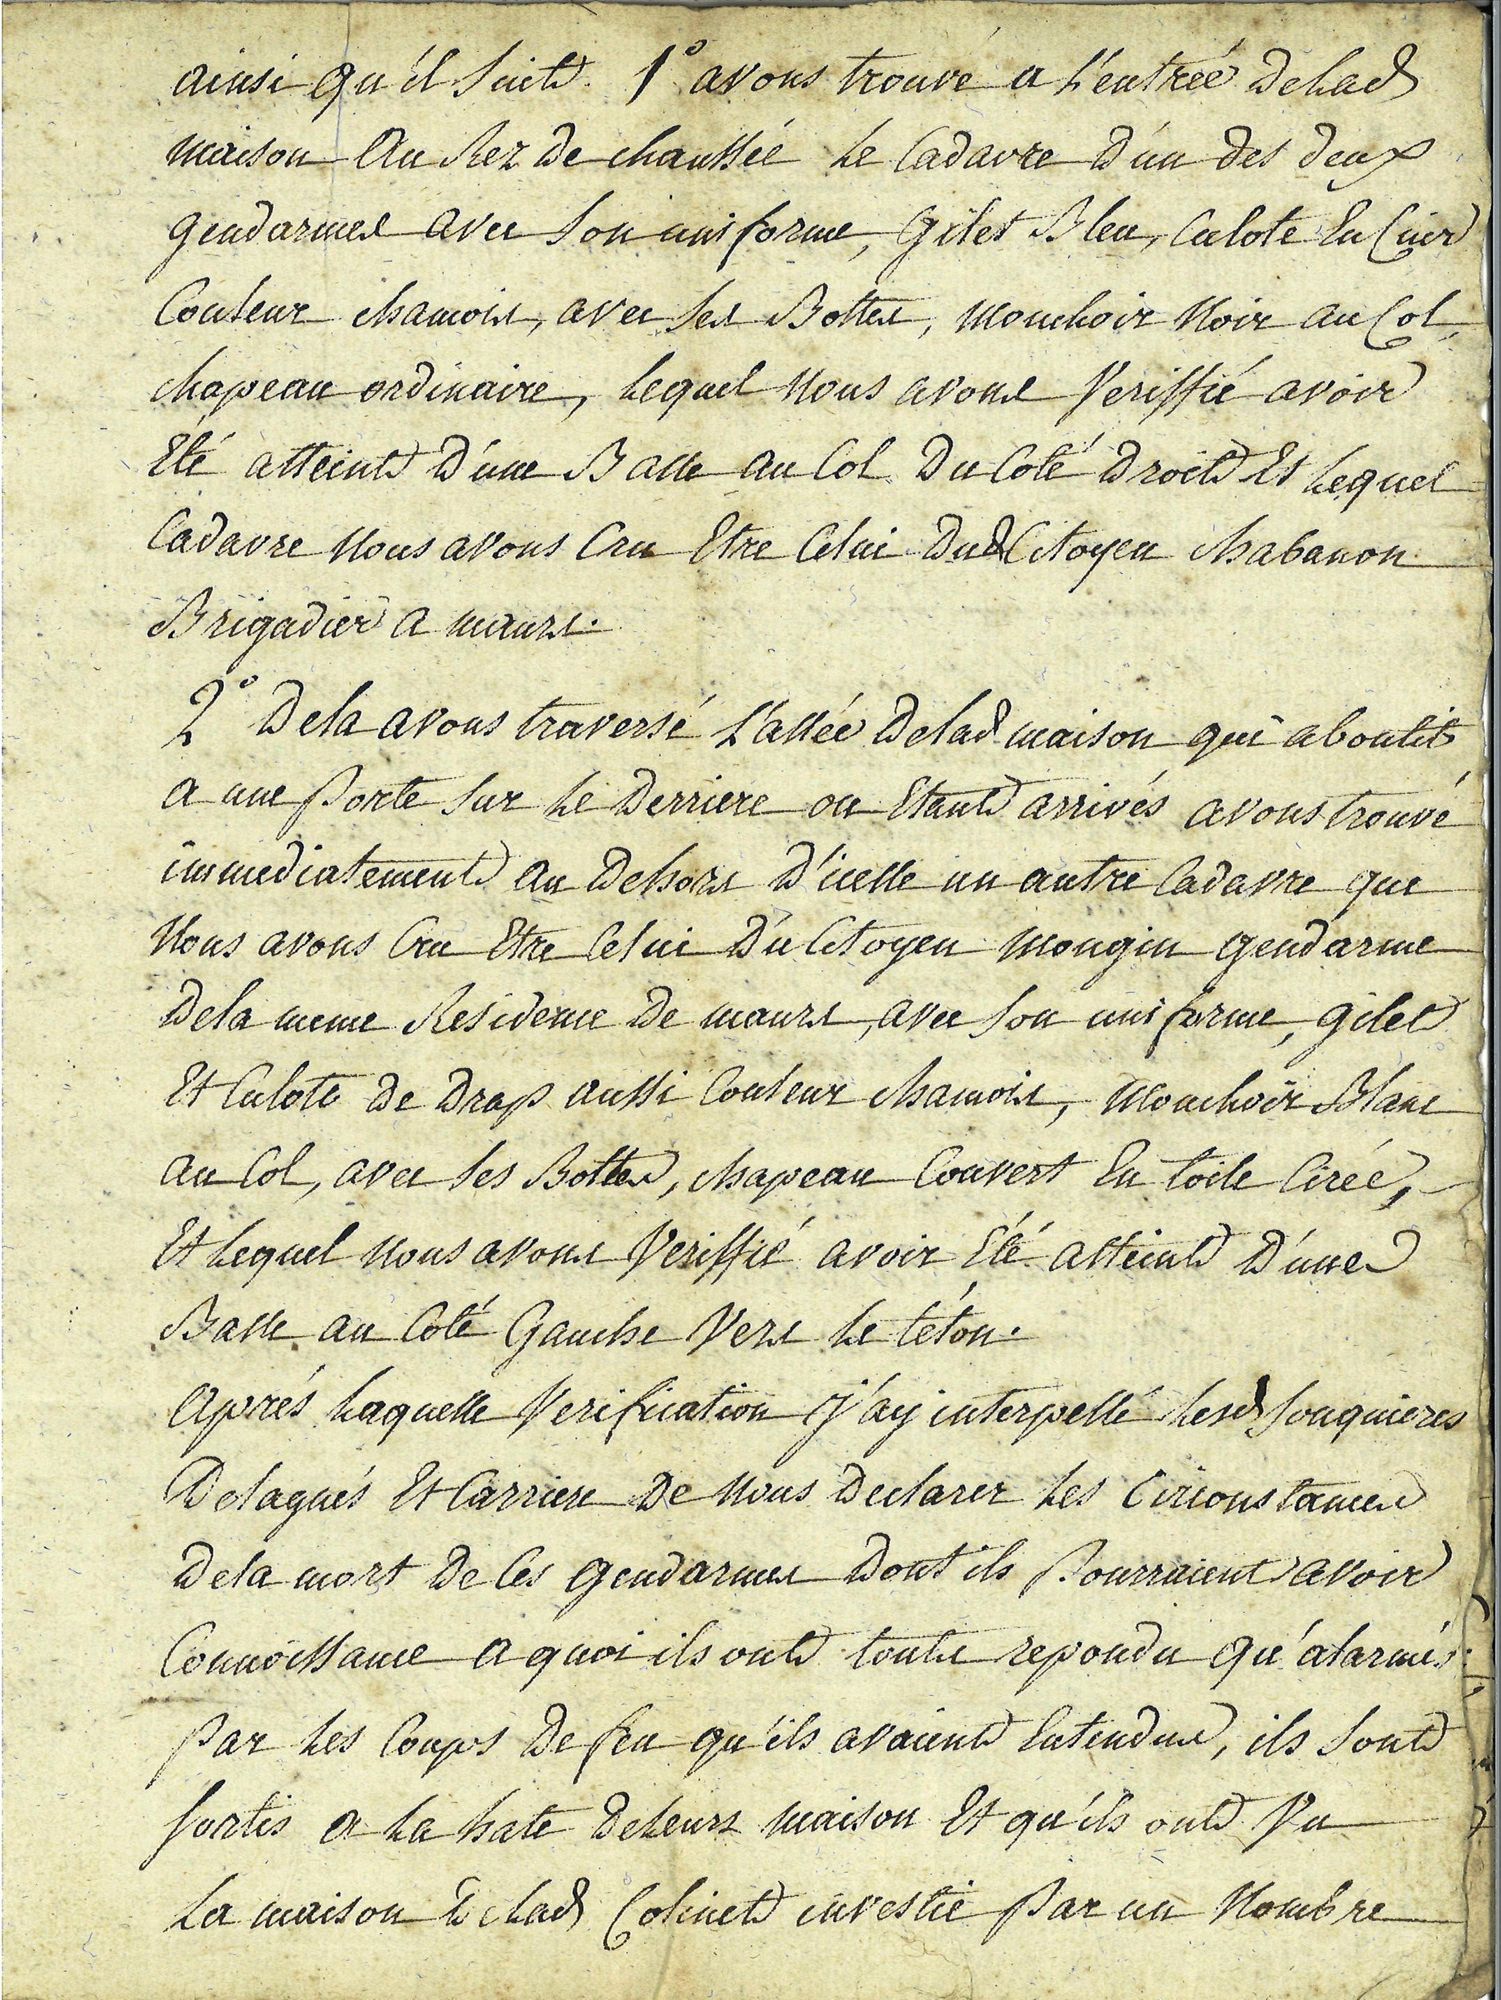 ainsi qu'il suit. 1° avons trouvé a L'entrée de Lad
maison au Rez de chaussée Le Cadavre d'un des deux
gendarmes avec son uniforme, Gilet Bleu, Culote En Cuir
Couleur chamois, avec ses Bottes, mouchoir Noir au Col,
chapeau ordinaire, Lequel Nous avons Veriffié avoir
Eté atteint d'une Balle au Col du Coté droit Et Lequel
Cadavre Nous avons Cru Etre Celui dud Citoyen chabanon
Brigadier a maurs.
2° dela avons traversé L'allée de lad maison qui aboutit
a une Porte sur Le derriere ou Etant arrivés avons trouvé
immediatement au dehors d'icelle un autre Cadavre que
Nous avons Cru Etre Celui du Citoyen mongin gendarme
dela meme Residence de maurs, avec son uniforme, gilet
Et Culote de drap aussi Couleur chamois, mouchoir Blanc
au Col, avec ses Bottes, chapeau Couvert En toile Cirée,
Et Lequel Nous avons Veriffié avoir Eté atteint d'une
Balle au Coté Gauche Vers Le téton.
Aprés Laquelle Verification j'ay interpellé Lesd Souquieres
Delagnés Et Carriere de Nous declarer Les Circonstances
dela mort de Ces gendarmes dont ils Pourraient avoir
Connoissance a quoi ils ont touts repondu qu'alarmés
Par Les Coups de feu qu'ils avaient Entendus, ils sont
sortis a La hate de Leurs maison Et qu'ils ont Vu
La maison de Lad Colinet investie Par un Nombre